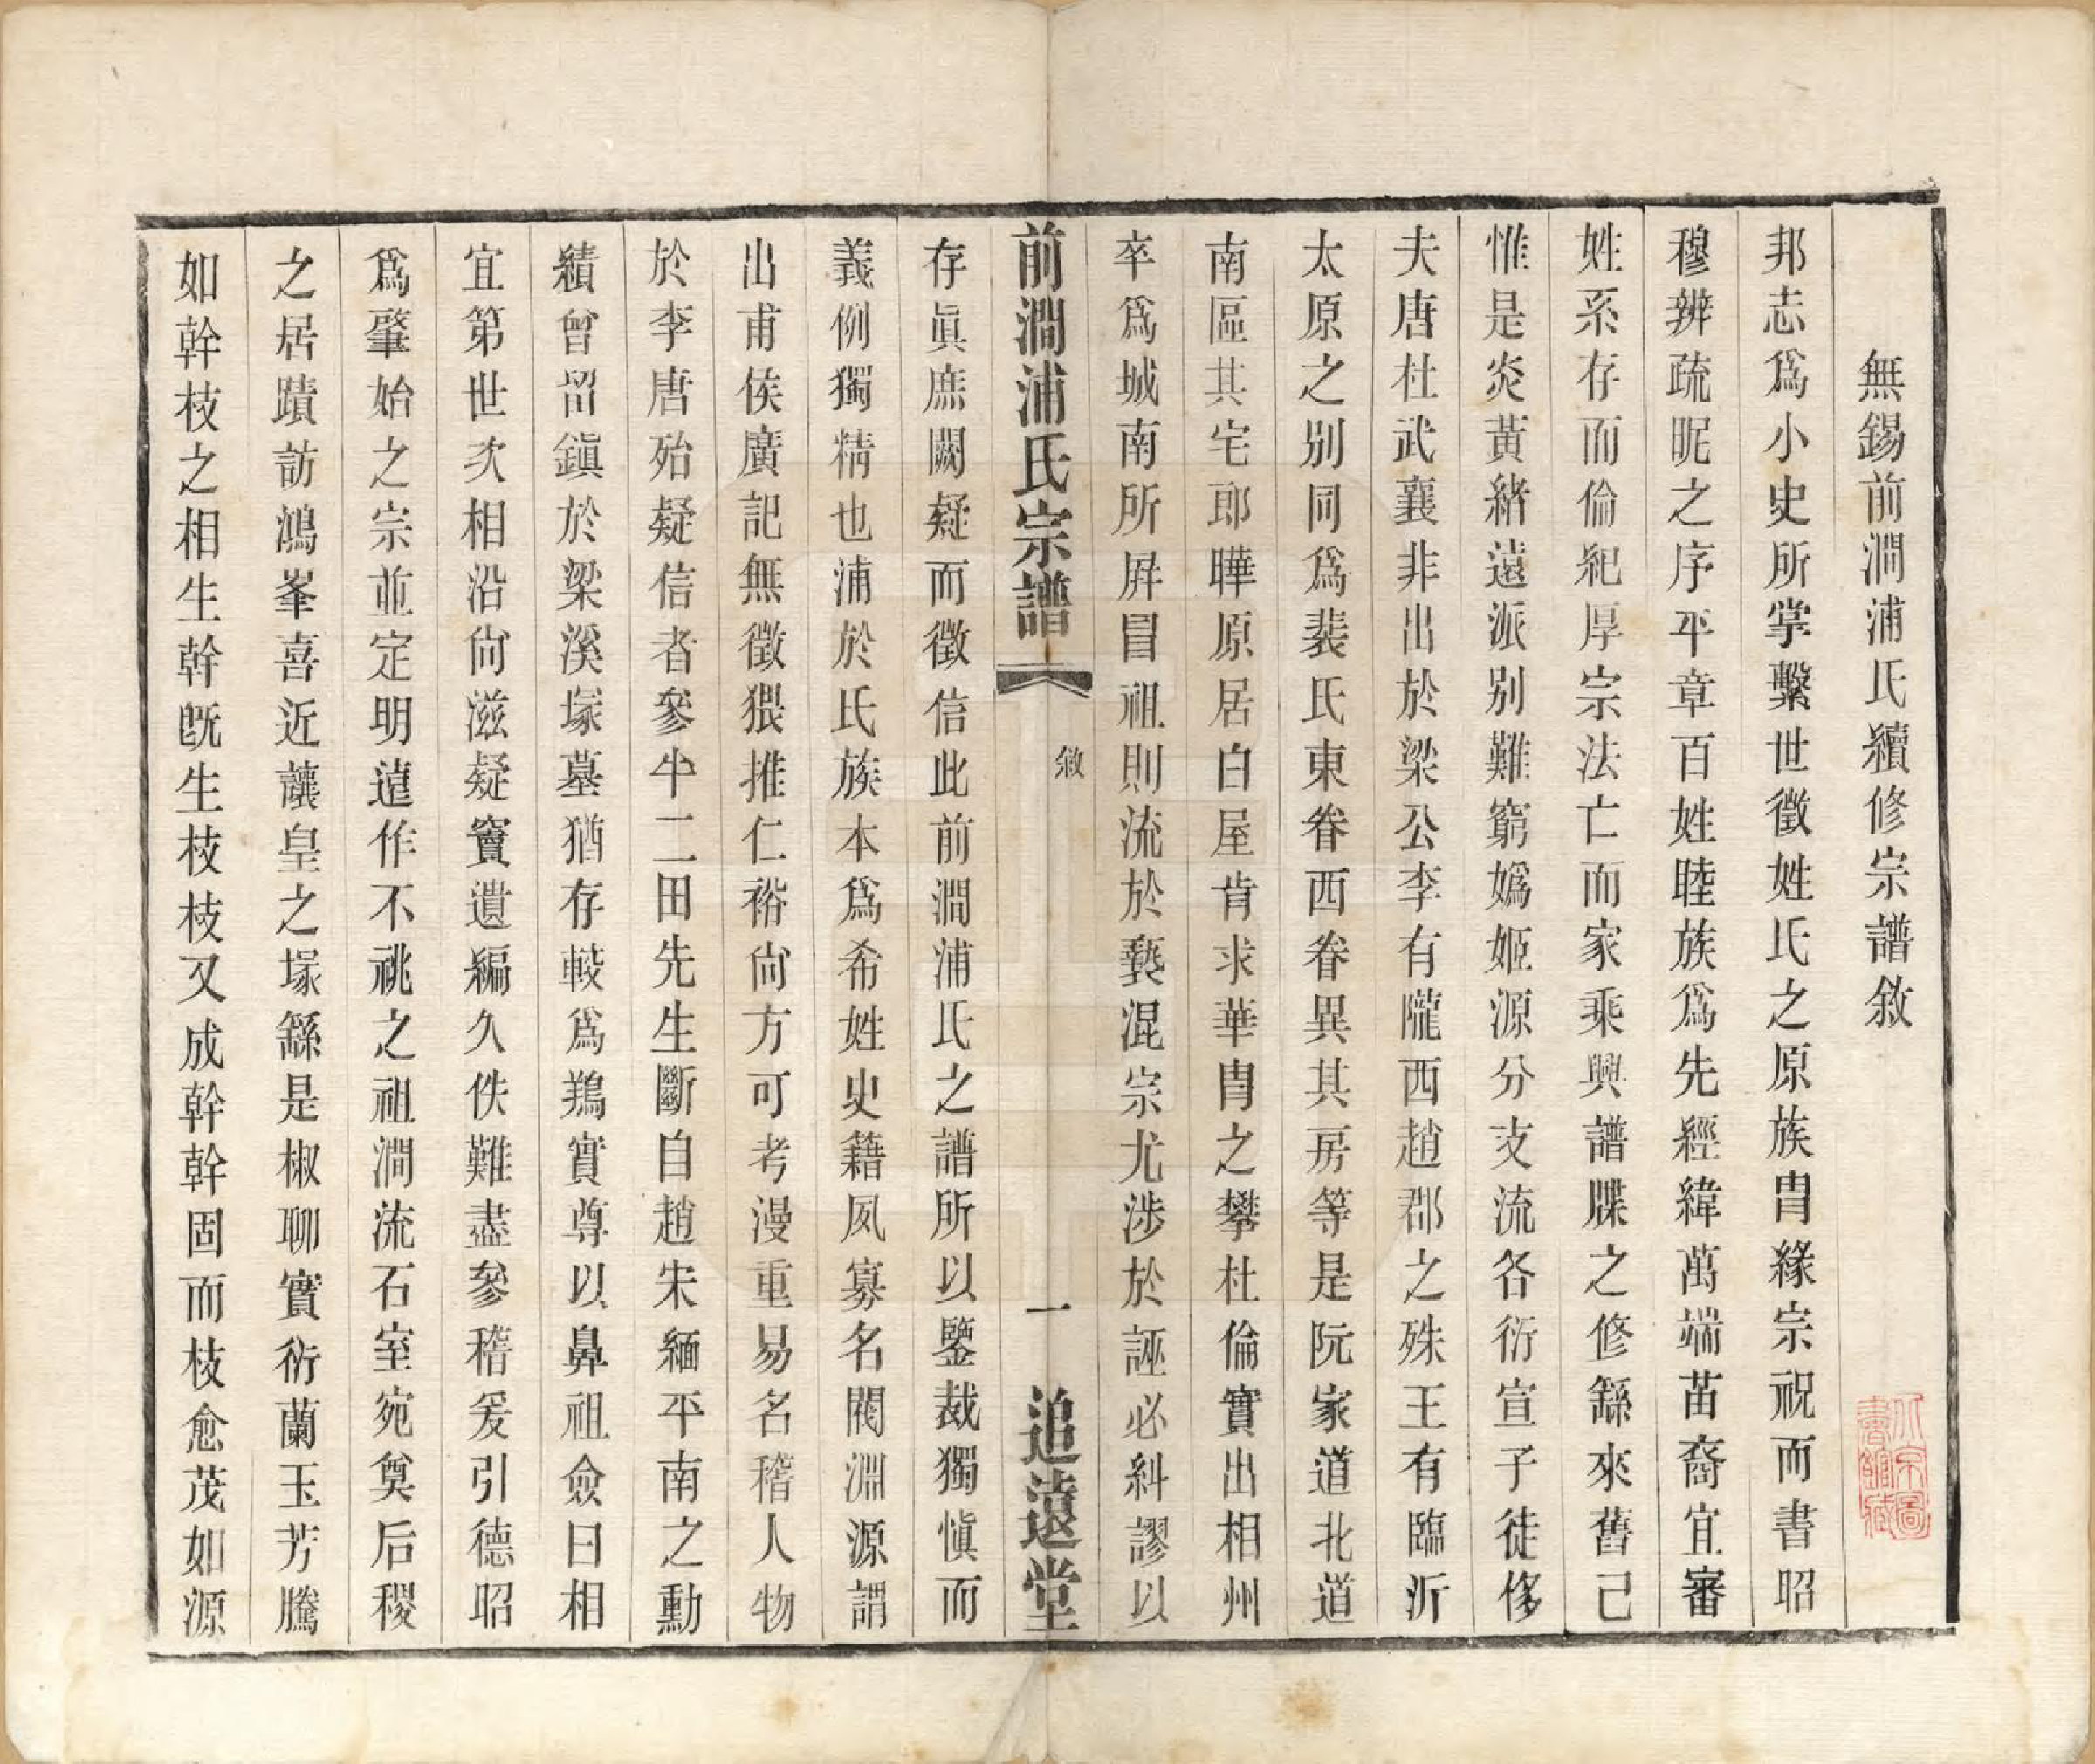 無錫前澗浦氏續修宗譜敘
邦志爲小史所掌繫世徵姓氏之原族冑緣宗祝而書昭
穆辨疏昵之序平章百姓睦族爲先經緯萬端苗裔宜審
姓系存而倫紀厚宗法亡而家乘興譜牒之修繇來舊已
惟是炎黃緒遠派別難窮嬀姬源分支流各衍宣子徒侈
夫唐杜武襄非出於梁公李有隴西趙郡之殊王有臨沂
太原之別同爲裴氏東眷西眷異其房等是阮家道北道
南區其宅郎曄原居白屋肯求華冑之攀杜倫實出相州
卒爲城南所屛冒祖則流於褻混宗尤涉於誣必糾謬以
前澗浦氏宗譜
敘
一
追遠堂
存眞庶闕疑而徵信此前澗浦氏之譜所以鑒裁獨愼而
義例獨精也浦於氏族本爲希姓史籍夙寡名閥淵源謂
出甫侯廣記無徵猥推仁裕尙方可考漫重易名稽人物
於李唐殆疑信者參半二田先生斷自趙宋緬平南之勳
績曾留鎭於梁溪塚墓猶存較爲鶪實尊以鼻祖僉曰相
宜第世次相沿尙滋疑竇遺編久佚難盡參稽爰引德昭
爲肇始之宗並定明遠作不祧之祖澗流石室宛奠后稷
之居蹟訪鴻峯喜近讓皇之塚繇是椒聊實衍蘭玉芳騰
如幹枝之相生幹旣生枝枝又成幹幹固而枝愈茂如源